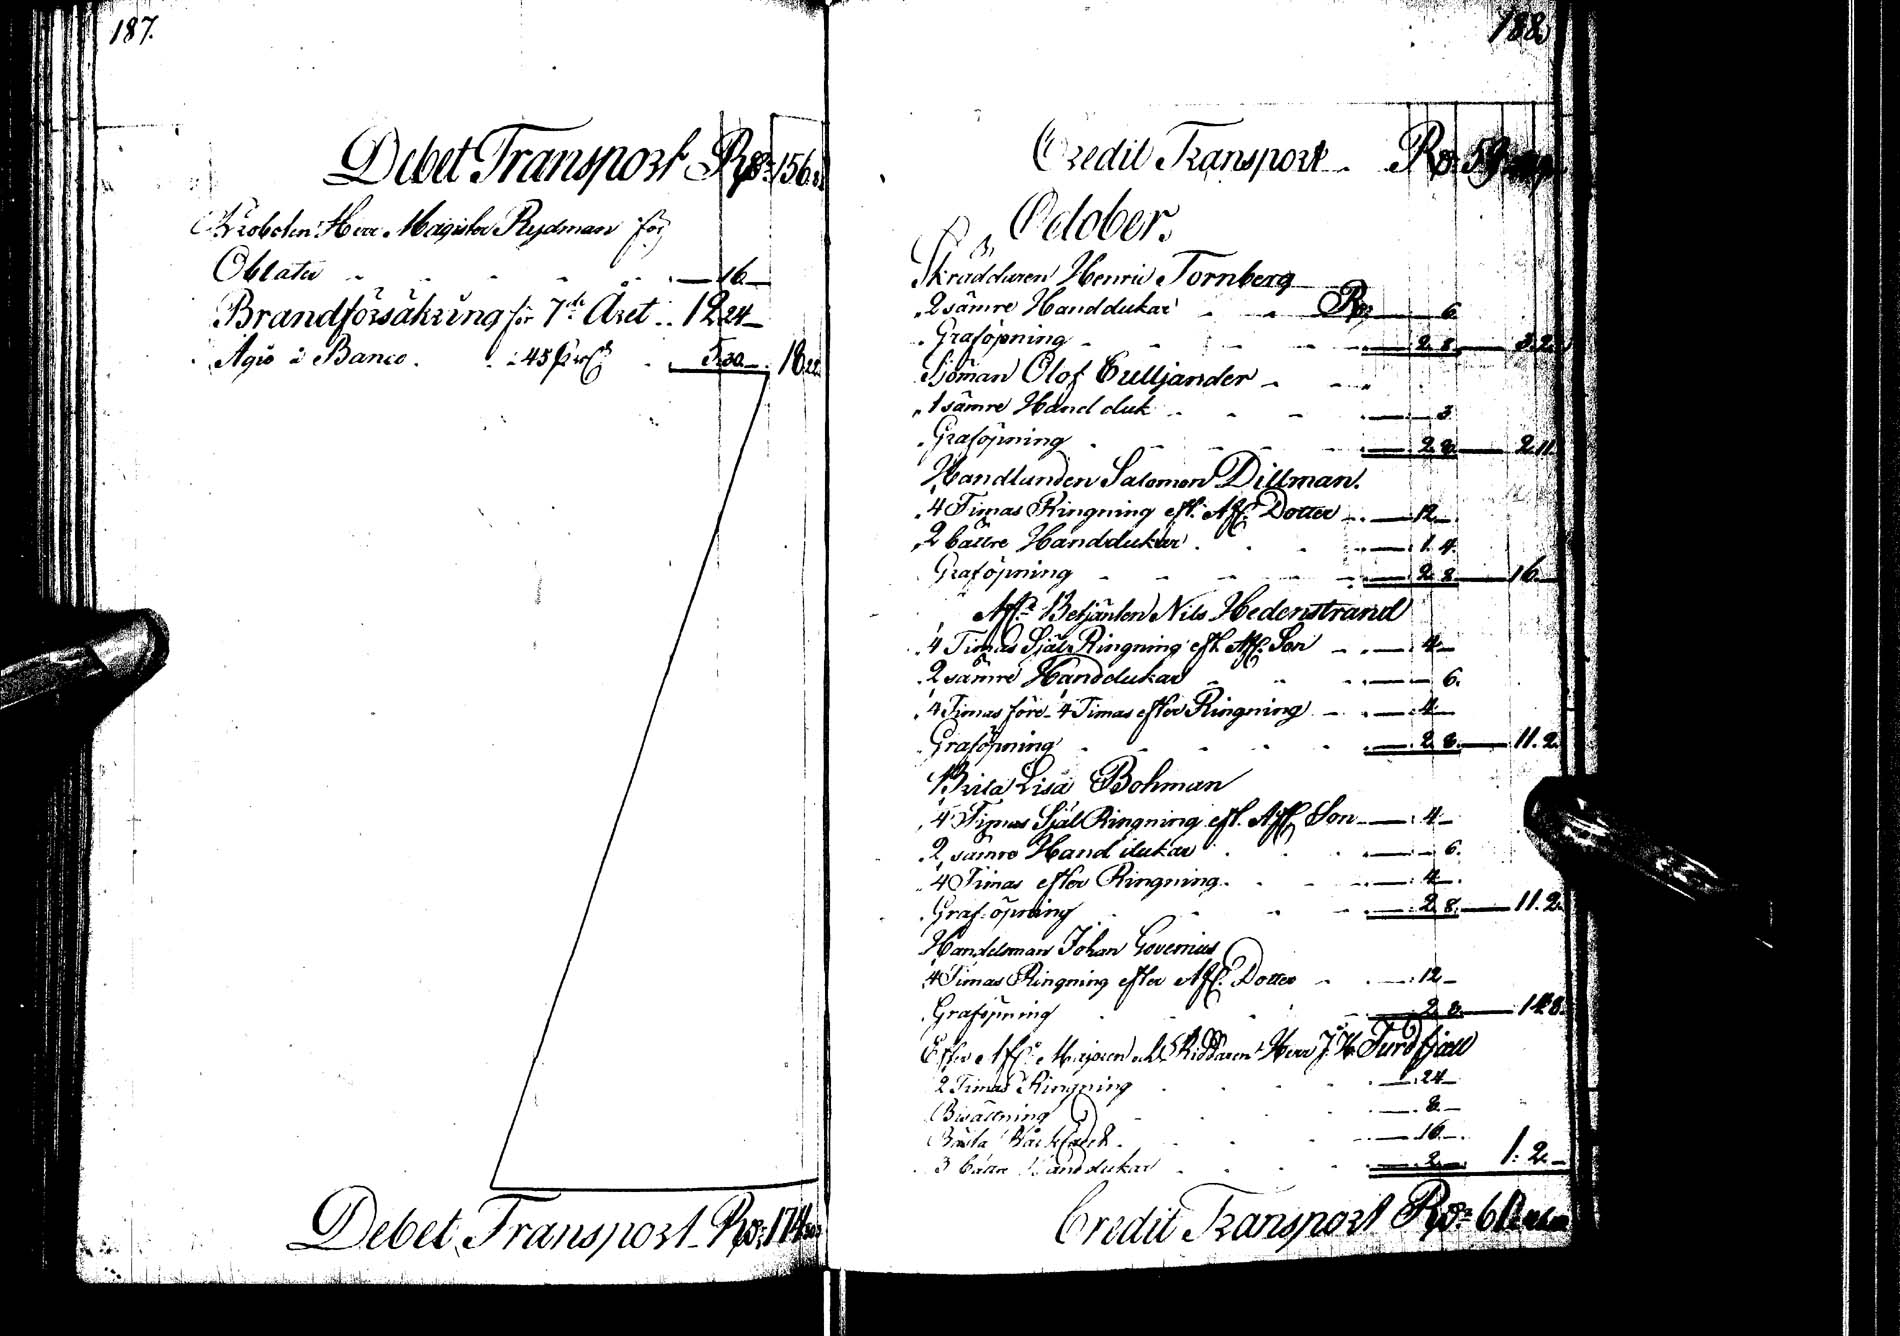 187.
Debet Transport Rd: 156.
Probsten Herr Magister Rydman för
Oblater 16.
Brandförsäkring för 7de Året 12.24
Agio å Banco 45 prCt 5.30 18.22
Debet Transport Rd: 174
188
Credit Transport Rd: 59
October.
Skräddaren Henric Tornberg
2 sämre Handdukar Rd: 6
Graföpning 2.8 3.2.
Sjöman Olof Culljander
1 sämre Handduk 3
Graföpning 2.8. 2.11
Handlanden Salomon Dillman.
4 Timas Ringning eft. Aff. Dotter 12
2 bättre Handdukar 1.4
Graföpning 2.8 16
Aff. Betjänten Nils Hedenstrand
4 Timas Själ Ringning eft. Aff. Son 4
2 sämre Handdukar 6.
4 Timas före 4 Timas efter Ringning 4
Graföpning 2.8. 11.2.
Brita Lisa Bohman
4 Timas Själ Ringning eft. Aff. Son 4
2 sämre Handdukar 6.
4 Timas efter Ringning. 4
Graf-öpning 2.8. 11.2.
Handelsman Johan Governius
4 Timas Ringning efter Aff. Dotter 12
Graföpning 2.8. 14.8.
Efter Aff. Majoren och Riddaren Herr J. H.
2 Timas Ringning 24
Bisättning 8
Bästa 16
3 bättre Handdukar 2 1:2.
Credit Transport Rd: 61